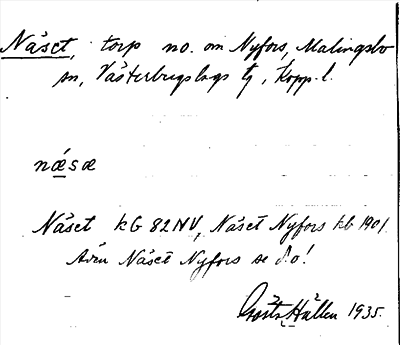 Näset, torp no. om Nyfors, Malingsbo
sn, Västerbergslags tg, Kopp. l.
næ´sæ
Näset kG 82NV, Näset Nyfors kb 1901
Även Näset Nyfors se d:o!
Gösta Hallen 1935.